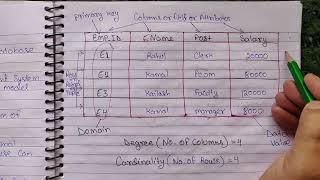 primary key
Columns or field or Attributes
Emp.ID E.Name Post Salary
E1 Rahul Clerk 20000
E2 Kamal Peon 8000
E3 Kailash Faculty 12000
E4 Kamal manager 8000
Domain
Data Value
Degree (No. of Columns) = 4
Cardinality (No. of Rows) = 4
database
System
model
Can